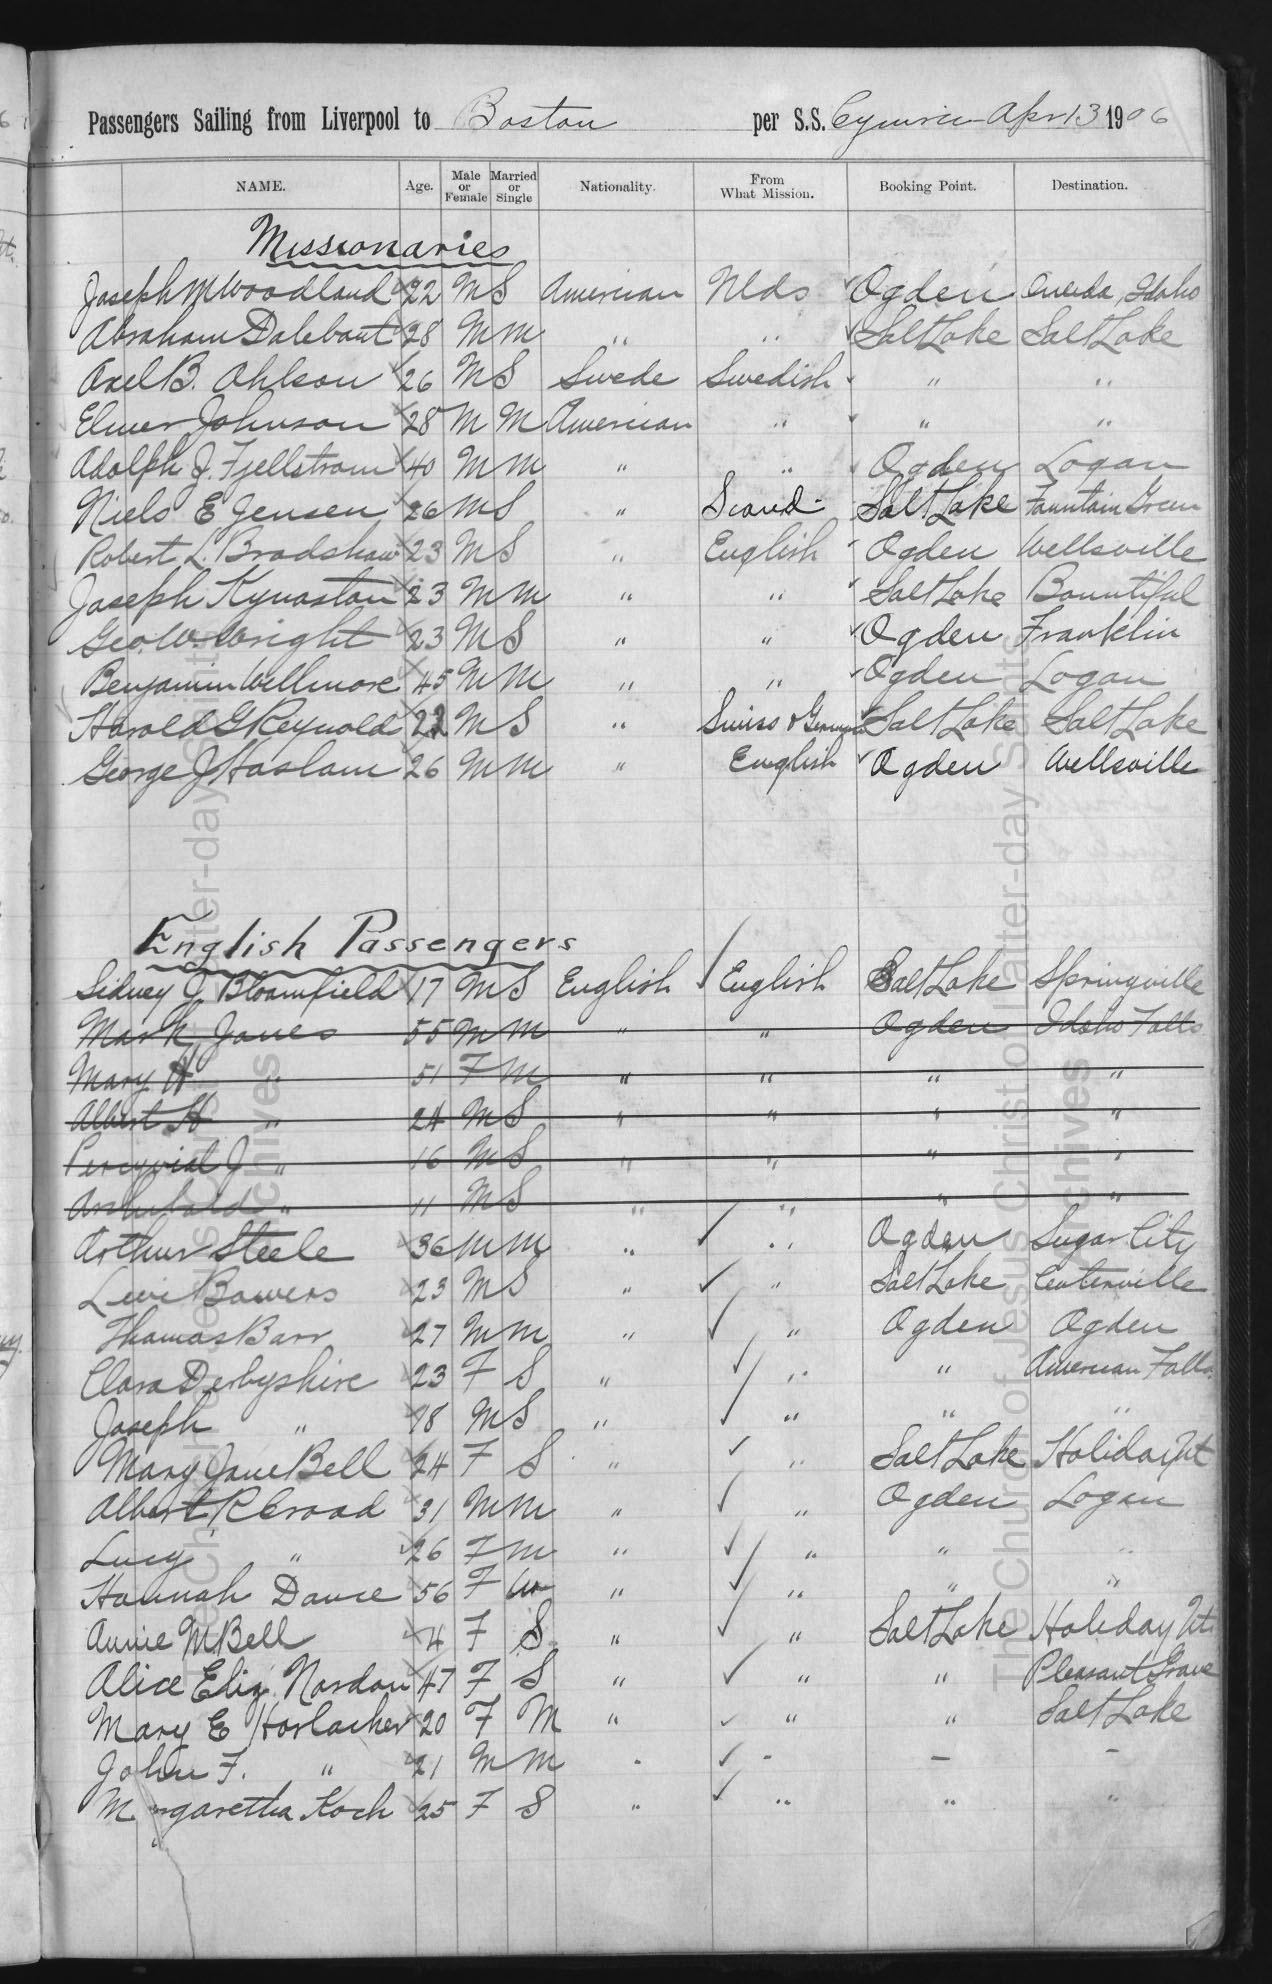 Passengers Sailing from Liverpool to Boston per S.S. Cymric Apr 13 1906
NAME. Age. Male or Female Married or Single Nationality. From What Mission. Booking Point. Destination.
Missionaries
Joseph M Woodland 22 M S American Nlds Ogden Oneida, Idaho
Abraham Dalebout 28 M M " " Salt Lake Salt Lake
Axel B. Ohlson 26 M S Swede Swedish " "
Elmer Johnson 28 M M American " " "
Adolph J. Fjellstrom 40 M M " " Ogden Logan
Niels E Jensen 26 M S " Scand- Salt Lake Fountain Green
Robert L. Bradshaw 23 M S " English Ogden Wellsville
Joseph Kynaston 23 M M " " Salt Lake Bountiful
Geo. W. Wright 23 M S " " Ogden Franklin
Benjamin Willmore 45 M M " " Ogden Logan
Harold G Reynold 22 M S " Swiss & German Salt Lake Salt Lake
George J Haslam 26 M M " English Ogden Wellsville
English Passengers
Sidney J Bloomfield 17 M S English English Salt Lake Springville
Mark Jones 55 M M " " Ogden Idaho Falls
Mary H " 51 F M " " " "
Albert H " 24 M S " " " "
Percyvial J " 16 M S " " " "
Archibald " 11 M S " " " "
Arthur Steele 36 M M " " Ogden Sugar City
Levi Bowers 23 M S " " Salt Lake Centerville
Thomas Barr 27 M M " " Ogden Ogden
Clara Derbyshire 23 F S " " " American Falls
Joseph " 18 M S " " " "
Mary Jane Bell 24 F S " " Salt Lake Holiday Ut
Albert R Croad 31 M M " " Ogden Logan
Lucy " 26 F M " " " "
Hannah Dance 56 F W " " " "
Annie M Bell 4 F S " " Salt Lake Holiday Ut.
Alice Eliz. Nordon 47 F S " " " Pleasant Grove
Mary E Horlacher 20 F M " " " Salt Lake
John F. " 21 M M - - - -
Margaretha Koch 25 F S " " " "
The Church of Jesus Christ of Latter-day Saints
Archives
The Church of Jesus Christ of Latter-day Saints
Archives